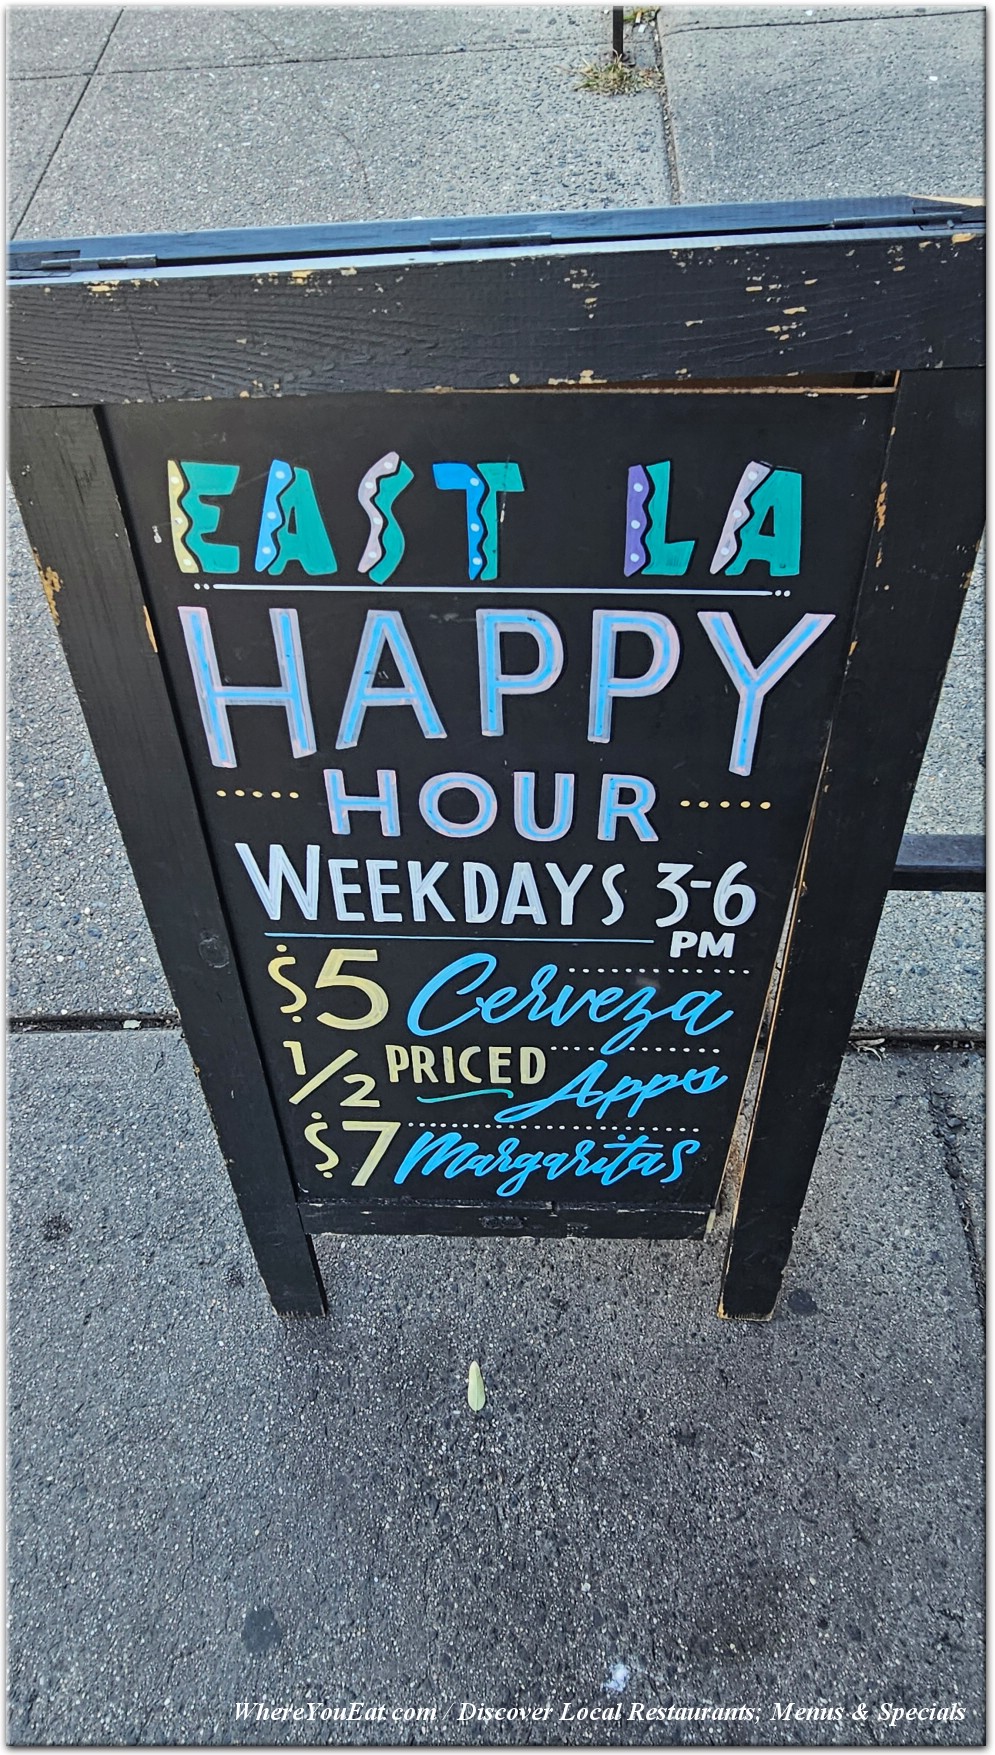 EAST LA
HAPPY
HOUR
WEEKDAYS 3-6
PM
$5 Cerveza
1/2 PRICED Apps
$7 Margaritas
WhereYouEat.com / Discover Local Restaurants, Menus & Specials